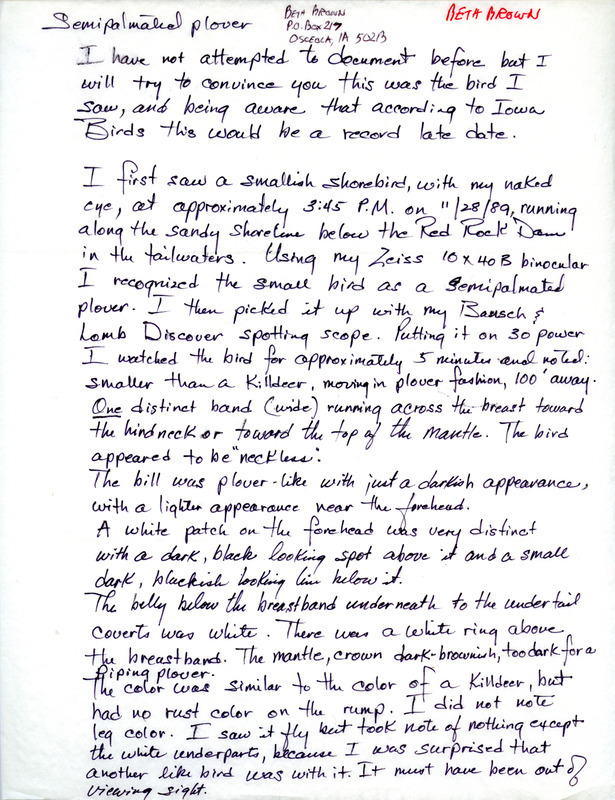 Semipalmated plover
BETH BROWN
P.O. Box 217
OSCEOLA, IA 50213
BETH BROWN
I have not attempted to document before but I
will try to convince you this was the bird I
saw, and being aware that according to Iowa
Birds this would be a record late date.
I first saw a smallish shorebird, with my naked
eye, at approximately 3:45 P.M. on 11/28/89, running
along the sandy shoreline below the Red Rock Dam
in the tailwaters. Using my Zeiss 10x40B binocular
I recognized the small bird as a Semipalmated
plover. I then picked it up with my Bausch &
Lomb Discover spotting scope. Putting it on 30 power
I watched the bird for approximately 5 minutes and noted:
smaller than a Killdeer, moving in plover fashion, 100' away.
One distinct band (wide) running across the breast toward
the hindneck or toward the top of the mantle. The bird
appeared to be "neckless".
The bill was plover-like with just a darkish appearance,
with a lighter appearance near the forehead.
A white patch on the forehead was very distinct
with a dark, black looking spot above it and a small
dark, blackish looking line below it.
The belly below the breastband underneath to the undertail
coverts was white. There was a white ring above
the breastband. The mantle, crown dark-brownish, too dark for a
Piping plover.
The color was similar to the color of a Killdeer, but
had no rust color on the rump. I did not note
leg color. I saw it fly but took note of nothing except
the white underparts, because I was surprised that
another like bird was with it. It must have been out of
viewing sight.